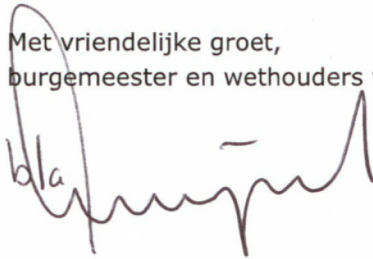 Met vriendelijke groet,
burgemeester en wethouders
b/a